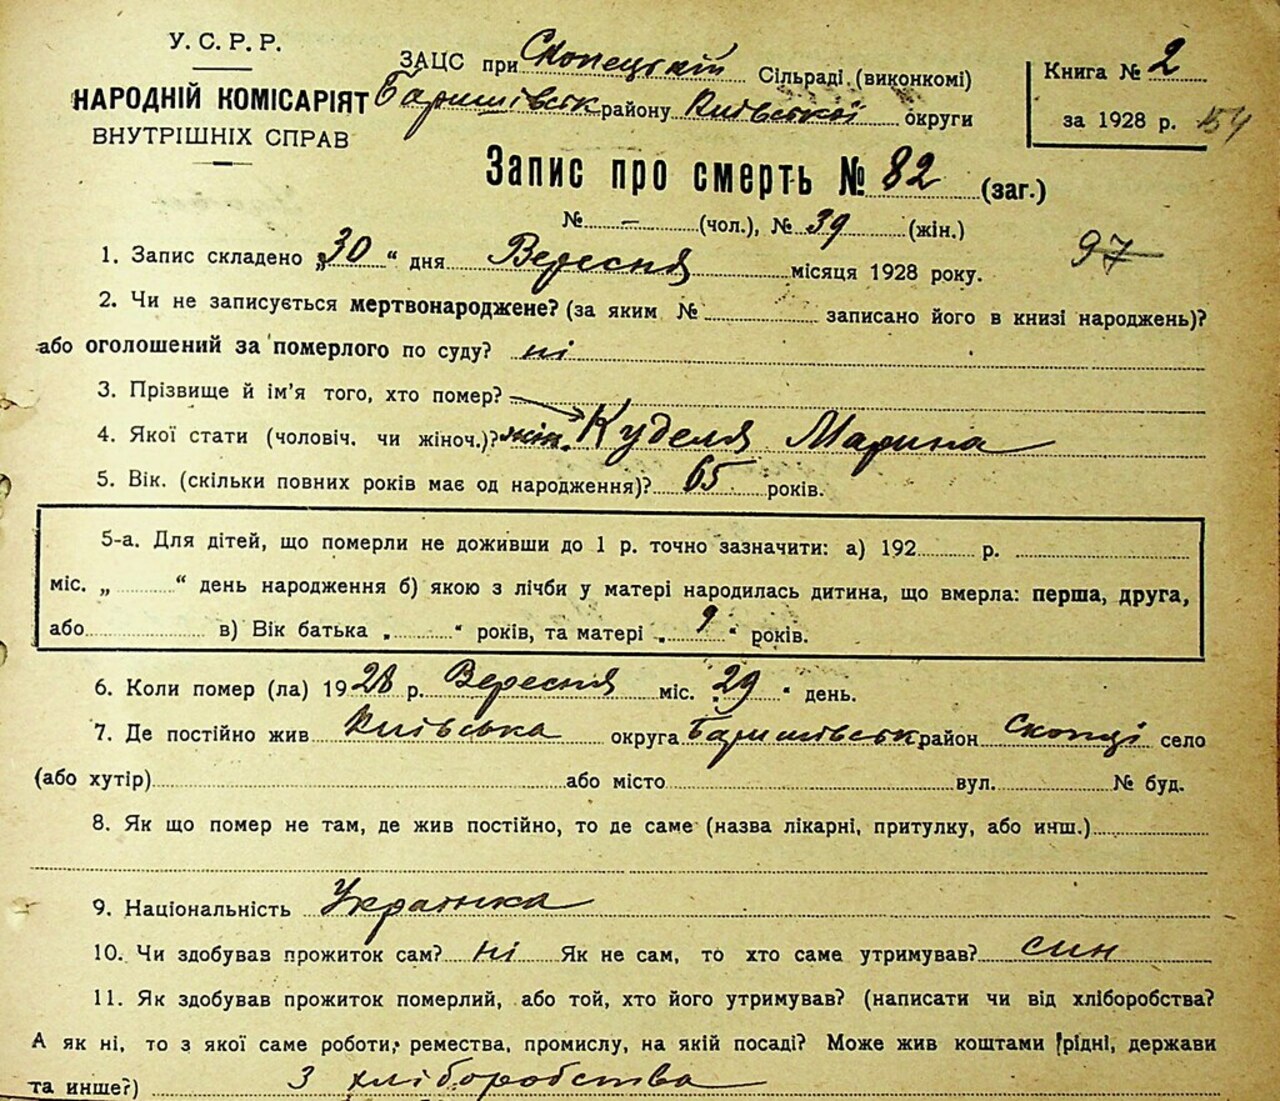 У. С. Р. Р.
НАРОДНІЙ КОМІСАРІЯТ
ВНУТРІШНІХ СПРАВ
ЗАЦС при Скопецькій Сільраді (виконкомі)
Баришівськ району Київської округи
Книга № 2
за 1928 р. 154
Запис про смерть № 82 (заг.)
№ – (чол.), № 39 (жін.)
97
1. Запис складено „30“ дня Вересня місяця 1928 року.
2. Чи не записується мертвонароджене? (за яким № записано його в книзі народжень)?
або оголошений за померлого по суду? ні
3. Прізвище й ім’я того, хто помер?
4. Якої стати (чоловіч. чи жіноч.)? жін. Куделя Марина
5. Вік. (скільки повних років має од народження)? 65 років.
5-а. Для дітей, що померли не доживши до 1 р. точно зазначити: а) 192 р.
міс. „ “ день народження б) якою з лічби у матері народилась дитина, що вмерла: перша, друга,
або в) Вік батька „ “ років, та матері „ 9 “ років.
6. Коли помер (ла) 1928 р. Вересня міс. „29“ день.
7. Де постійно жив Київська округа Баришівськ район Скопці село
(або хутір) або місто вул. № буд.
8. Як що помер не там, де жив постійно, то де саме (назва лікарні, притулку, або инш.)
9. Національність Українка
10. Чи здобував прожиток сам? ні Як не сам, то хто саме утримував? син
11. Як здобував прожиток померлий, або той, хто його утримував? (написати чи від хліборобства?
А як ні, то з якої саме роботи, ремества, промислу, на якій посаді? Може жив коштами рідні, держави
та инше?) З хліборобства